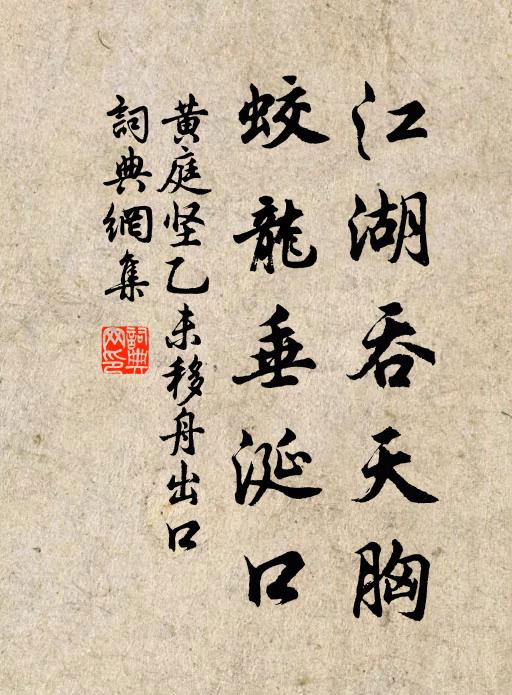 江湖吞天胸
蛟龍垂涎口
黄庭坚乙未移舟出口
詞典網集
詞典网印